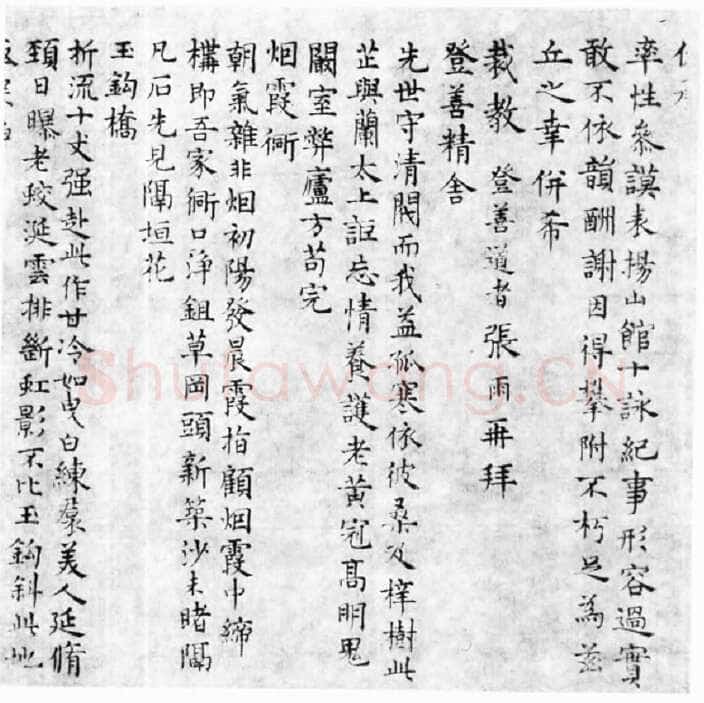 率性參謨表揚山館十詠紀事形容過實
敢不依韻酬謝因得攀附不朽足為茲
丘之幸併希
裁教 登善道者張雨再拜
登善精舍
先世守清閥而我益孤寒依彼桑及梓樹此
芷與蘭太上詎忘情養護老黃冠高明鬼
闞室弊廬方苟完
烟霞衕
朝氣雜非烟初陽發晨霞指顧烟霞中締
構即吾家衕口淨鉏草岡頭新築沙未睹隔
凡石先見隔垣花
玉鈎橋
折流十丈强赴此作甘冷如曳白練裙美人延脩
頸日曝老蛟涎雲排斷虹影不比玉鈎斜此地
Shufawang.CN